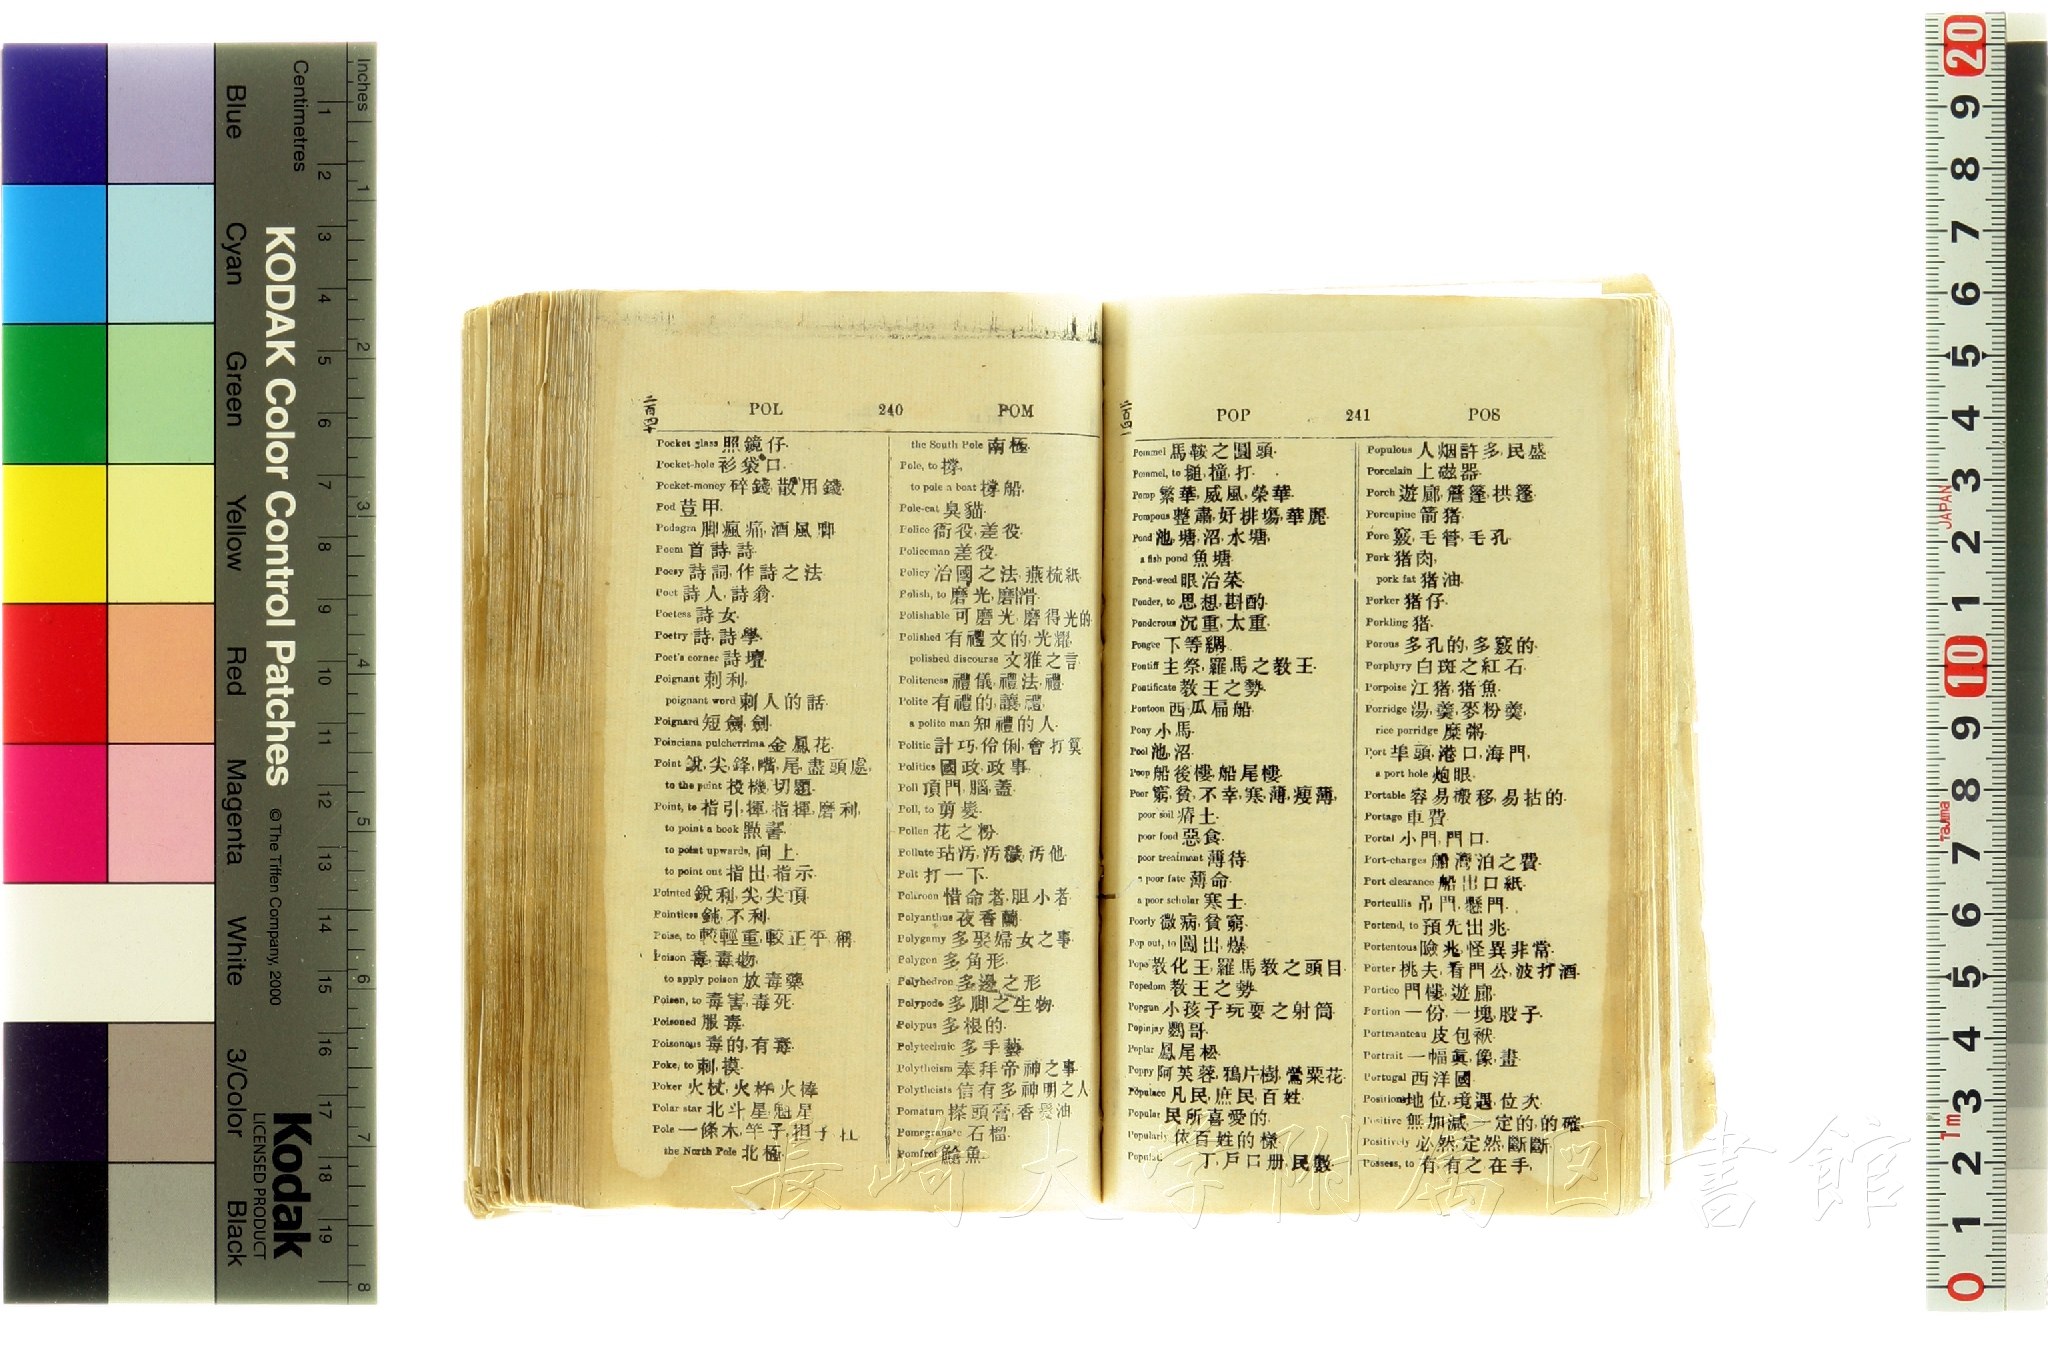 二百四十
POL 240 POM
Pocket glass 照鏡仔.
Pocket-hole 衫袋口.
Pocket-money 碎錢,散用錢.
Pod 荳甲.
Podagra 脚瘋痛,酒風脚
Poem 首詩,詩.
Poesy 詩詞,作詩之法
Poet 詩人,詩翁.
Poetess 詩女.
Poetry 詩,詩學.
Poet's corner 詩壇.
Poignant 刺利,
poignant word 刺人的話.
Poignard 短劍,劍.
Poinciana pulcherrima 金鳳花.
Point 銳,尖,鋒,嘴,尾,盡頭處,
to the point 投機,切題.
Point, to 指引,揮,指揮,磨利,
to point a book 點書.
to point upwards, 向上.
to point out 指出,指示.
Pointed 銳利,尖,尖頂.
Pointless 鈍,不利.
Poise, to 較輕重,較正平,稱.
Poison 毒,毒物,
to apply poison 放毒藥.
Poison, to 毒害,毒死.
Poisoned 服毒.
Poisonous 毒的,有毒.
Poke, to 刺,摸.
Poker 火杖,火棒
Polar star 北斗星,魁星
Pole 一條木,竿子
the North Pole 北極.
the South Pole 南極.
Pole, to 撐,
to pole a boat 撐船.
Pole-cat 臭貓.
Police 衙役,差役.
Policeman 差役.
Policy 治國之法,燕梳紙.
Polish, to 磨光,磨滑.
Polishable 可磨光,磨得光的
Polished 有禮文的,光耀.
polished discourse 文雅之言.
Politeness 禮儀,禮法,禮.
Polite 有禮的,讓禮.
a polite man 知禮的人.
Politic 計巧,伶俐,會打算
Politics 國政,政事.
Poll 頂門,腦蓋.
Poll, to 剪髮.
Pollen 花之粉.
Pollute 玷汚,汚穢,汚他.
Polt 打一下.
Poltroon 惜命者,胆小者.
Polyanthus 夜香蘭.
Polygamy 多娶婦女之事.
Polygon 多角形.
Polyhedron 多邊之形
Polypode 多脚之生物.
Polypus 多根的.
Polytechnic 多手藝.
Polytheism 奉拜帝神之事.
Polytheists 信有多神明之人
Pomatum 搽頭膏,香髮油
Pomegranate 石榴.
Pomfret 鯧魚.
二百四十一
POP 241 POS
Pommel 馬鞍之圓頭.
Pommel, to 搥,撞,打.
Pomp 繁華,威風,榮華.
Pompous 整肅,好排塲,華麗.
Pond 池,塘,沼,水塘,
a fish pond 魚塘.
Pond-weed 眼治菜.
Ponder, to 思想,斟酌.
Ponderous 沉重,太重.
Pongee 下等綢.
Pontiff 主祭,羅馬之教王.
Pontificate 教王之勢.
Pontoon 西瓜扁船.
Pony 小馬.
Pool 池,沼.
Poop 船後樓,船尾樓.
Poor 窮,貧,不幸,寒,薄,瘦薄,
poor soil 瘠土.
poor food 惡食.
poor treatment 薄待.
a poor fate 薄命.
a poor scholar 寒士.
Poorly 微病,貧窮.
Pop out, to 闖出,爆.
Pope 教化王,羅馬教之頭目.
Popedom 教王之勢.
Popgun 小孩子玩耍之射筒.
Popinjay 鸚哥.
Poplar 鳳尾松.
Poppy 阿芙蓉,鴉片樹,鶯粟花.
Populace 凡民,庶民,百姓.
Popular 民所喜愛的.
Popularly 依百姓的樣.
丁,戶口册,民數.
Populous 人烟許多,民盛
Porcelain 上磁器.
Porch 遊廊,簷篷,拱篷.
Porcupine 箭猪.
Pore 竅,毛管,毛孔.
Pork 猪肉,
pork fat 猪油.
Porker 猪仔.
Porkling 猪.
Porous 多孔的,多竅的.
Porphyry 白斑之紅石.
Porpoise 江猪,猪魚.
Porridge 湯,羹,麥粉羹,
rice porridge 糜粥.
Port 埠頭,港口,海門,
a port hole 炮眼.
Portable 容易搬移,易拈的.
Portage 車費.
Portal 小門,門口.
Port-charges 船灣泊之費.
Port clearance 船出口紙.
Portcullis 吊門,懸門.
Portend, to 預先出兆.
Portentous 險兆,怪異非常.
Porter 挑夫,看門公,波打酒.
Portico 門樓,遊廊.
Portion 一份,一塊,股子.
Portmanteau 皮包袱.
Portrait 一幅眞,像,畫
Portugal 西洋國.
Position 地位,境遇,位次.
Positive 無加減,一定的,的確.
Positively 必然,定然,斷斷.
Possess, to 有,有之在手,
長崎大学附属図書館
Inches
Centimetres
KODAK Color Control Patches
© The Tiffen Company, 2000
Blue Cyan Green Yellow Red Magenta White 3/Color Black
Kodak
LICENSED PRODUCT
1 2 3 4 5 6 7 8 9 10 11 12 13 14 15 16 17 18 19
1 2 3 4 5 6 7 8
20 9 8 7 6 5 4 3 2 1 10 9 8 7 6 5 4 3 2 1 0
JAPAN
Tajima
1m